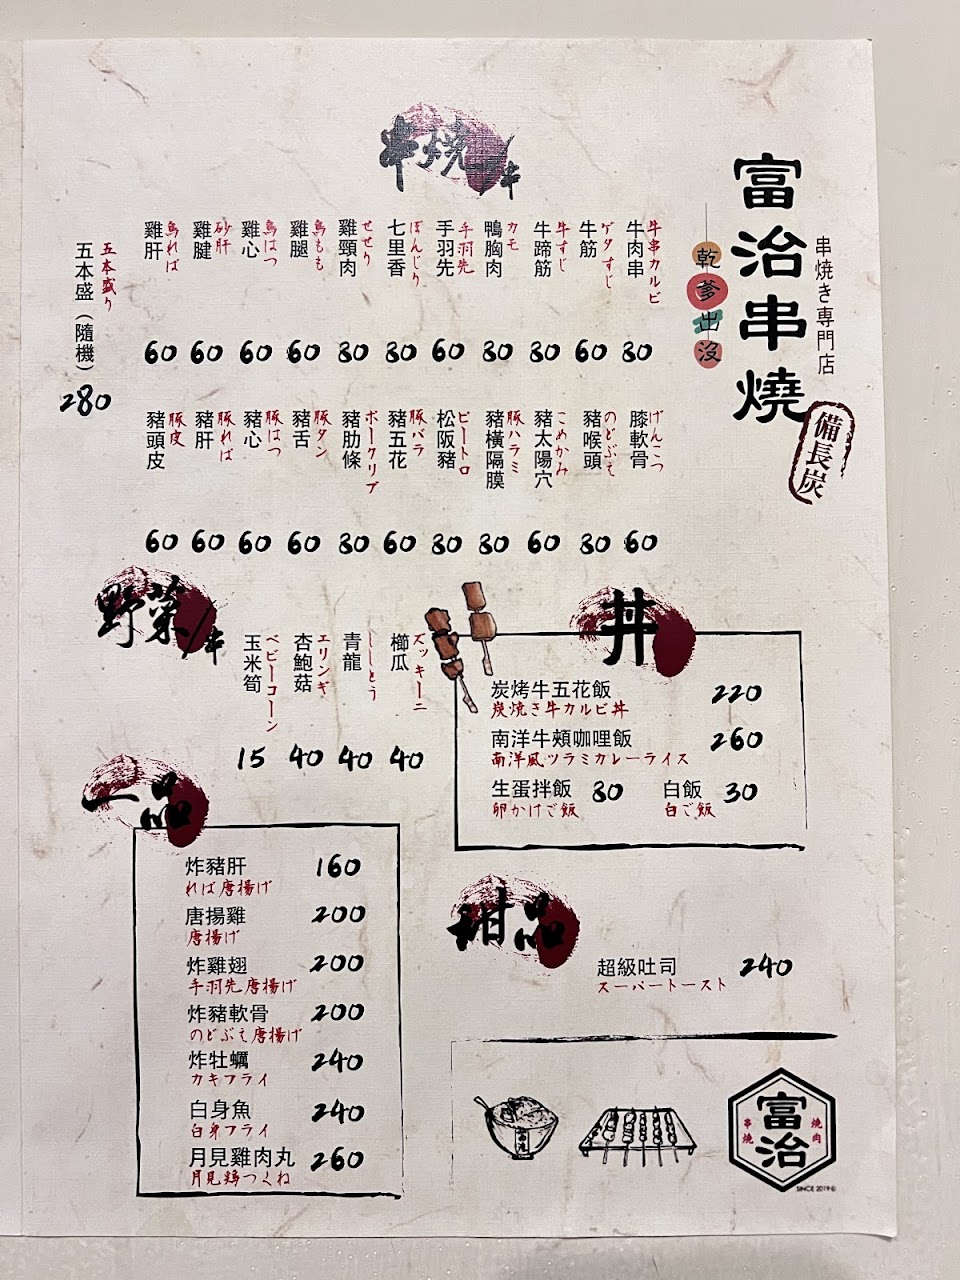 富治串燒
串焼き専門店
備長炭
乾爹出沒
串燒/串
牛肉串 牛串カルビ 80
牛筋 ゲタすじ 60
牛蹄筋 牛すじ 80
鴨胸肉 カモ 80
手羽先 手羽先 60
七里香 ぼんじり 80
雞頸肉 せせり 80
雞腿 鳥もも 60
雞心 鳥はつ 60
雞腱 砂肝 60
雞肝 鳥れば 60
五本盛(隨機) 五本盛り 280
膝軟骨 げんこつ 60
豬喉頭 のどぶえ 80
豬太陽穴 こめかみ 60
豬橫隔膜 豚ハラミ 80
松阪豬 ピートロ 80
豬五花 豚バラ 60
豬肋條 ポークリブ 80
豬舌 豚タン 60
豬心 豚はつ 60
豬肝 豚れば 60
豬頭皮 豚皮 60
野菜/串
櫛瓜 ズッキーニ 40
青龍 ししとう 40
杏鮑菇 エリンギ 40
玉米筍 ベビーコーン 15
丼
炭烤牛五花飯 220
炭焼き牛カルビ丼
南洋牛頰咖哩飯 260
南洋風ツラミカレーライス
生蛋拌飯 80 白飯 30
卵かけご飯 白ご飯
一品
炸豬肝 160
れば唐揚げ
唐揚雞 200
唐揚げ
炸雞翅 200
手羽先唐揚げ
炸豬軟骨 200
のどぶえ唐揚げ
炸牡蠣 240
カキフライ
白身魚 240
白身フライ
月見雞肉丸 260
月見鶏つくね
甜品
超級吐司 240
スーパートースト
富治
串燒
燒肉
SINCE 2019©